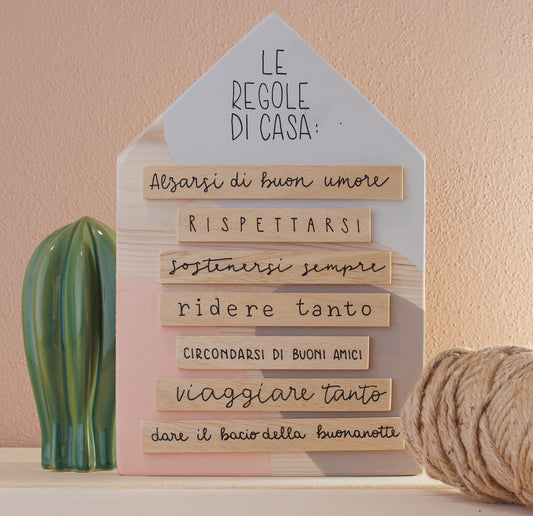 LE
REGOLE
DI CASA:
Alzarsi di buon umore
RISPETTARSI
sostenersi sempre
ridere tanto
CIRCONDARSI DI BUONI AMICI
viaggiare tanto
dare il bacio della buonanotte